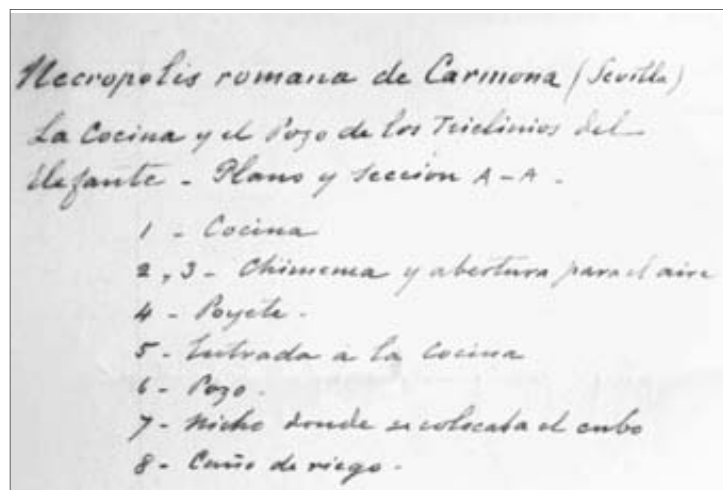 Necropolis romana de Carmona (Sevilla)
La Cocina y el Pozo de los Triclinios del
Elefante - Plano y Seccion A-A.
1 - Cocina
2, 3 - Chimenea y abertura para el aire
4 - Poyete.
5 - Entrada a la Cocina
6 - Pozo.
7 - Nicho donde se colocaba el cubo
8 - Caño de riego.